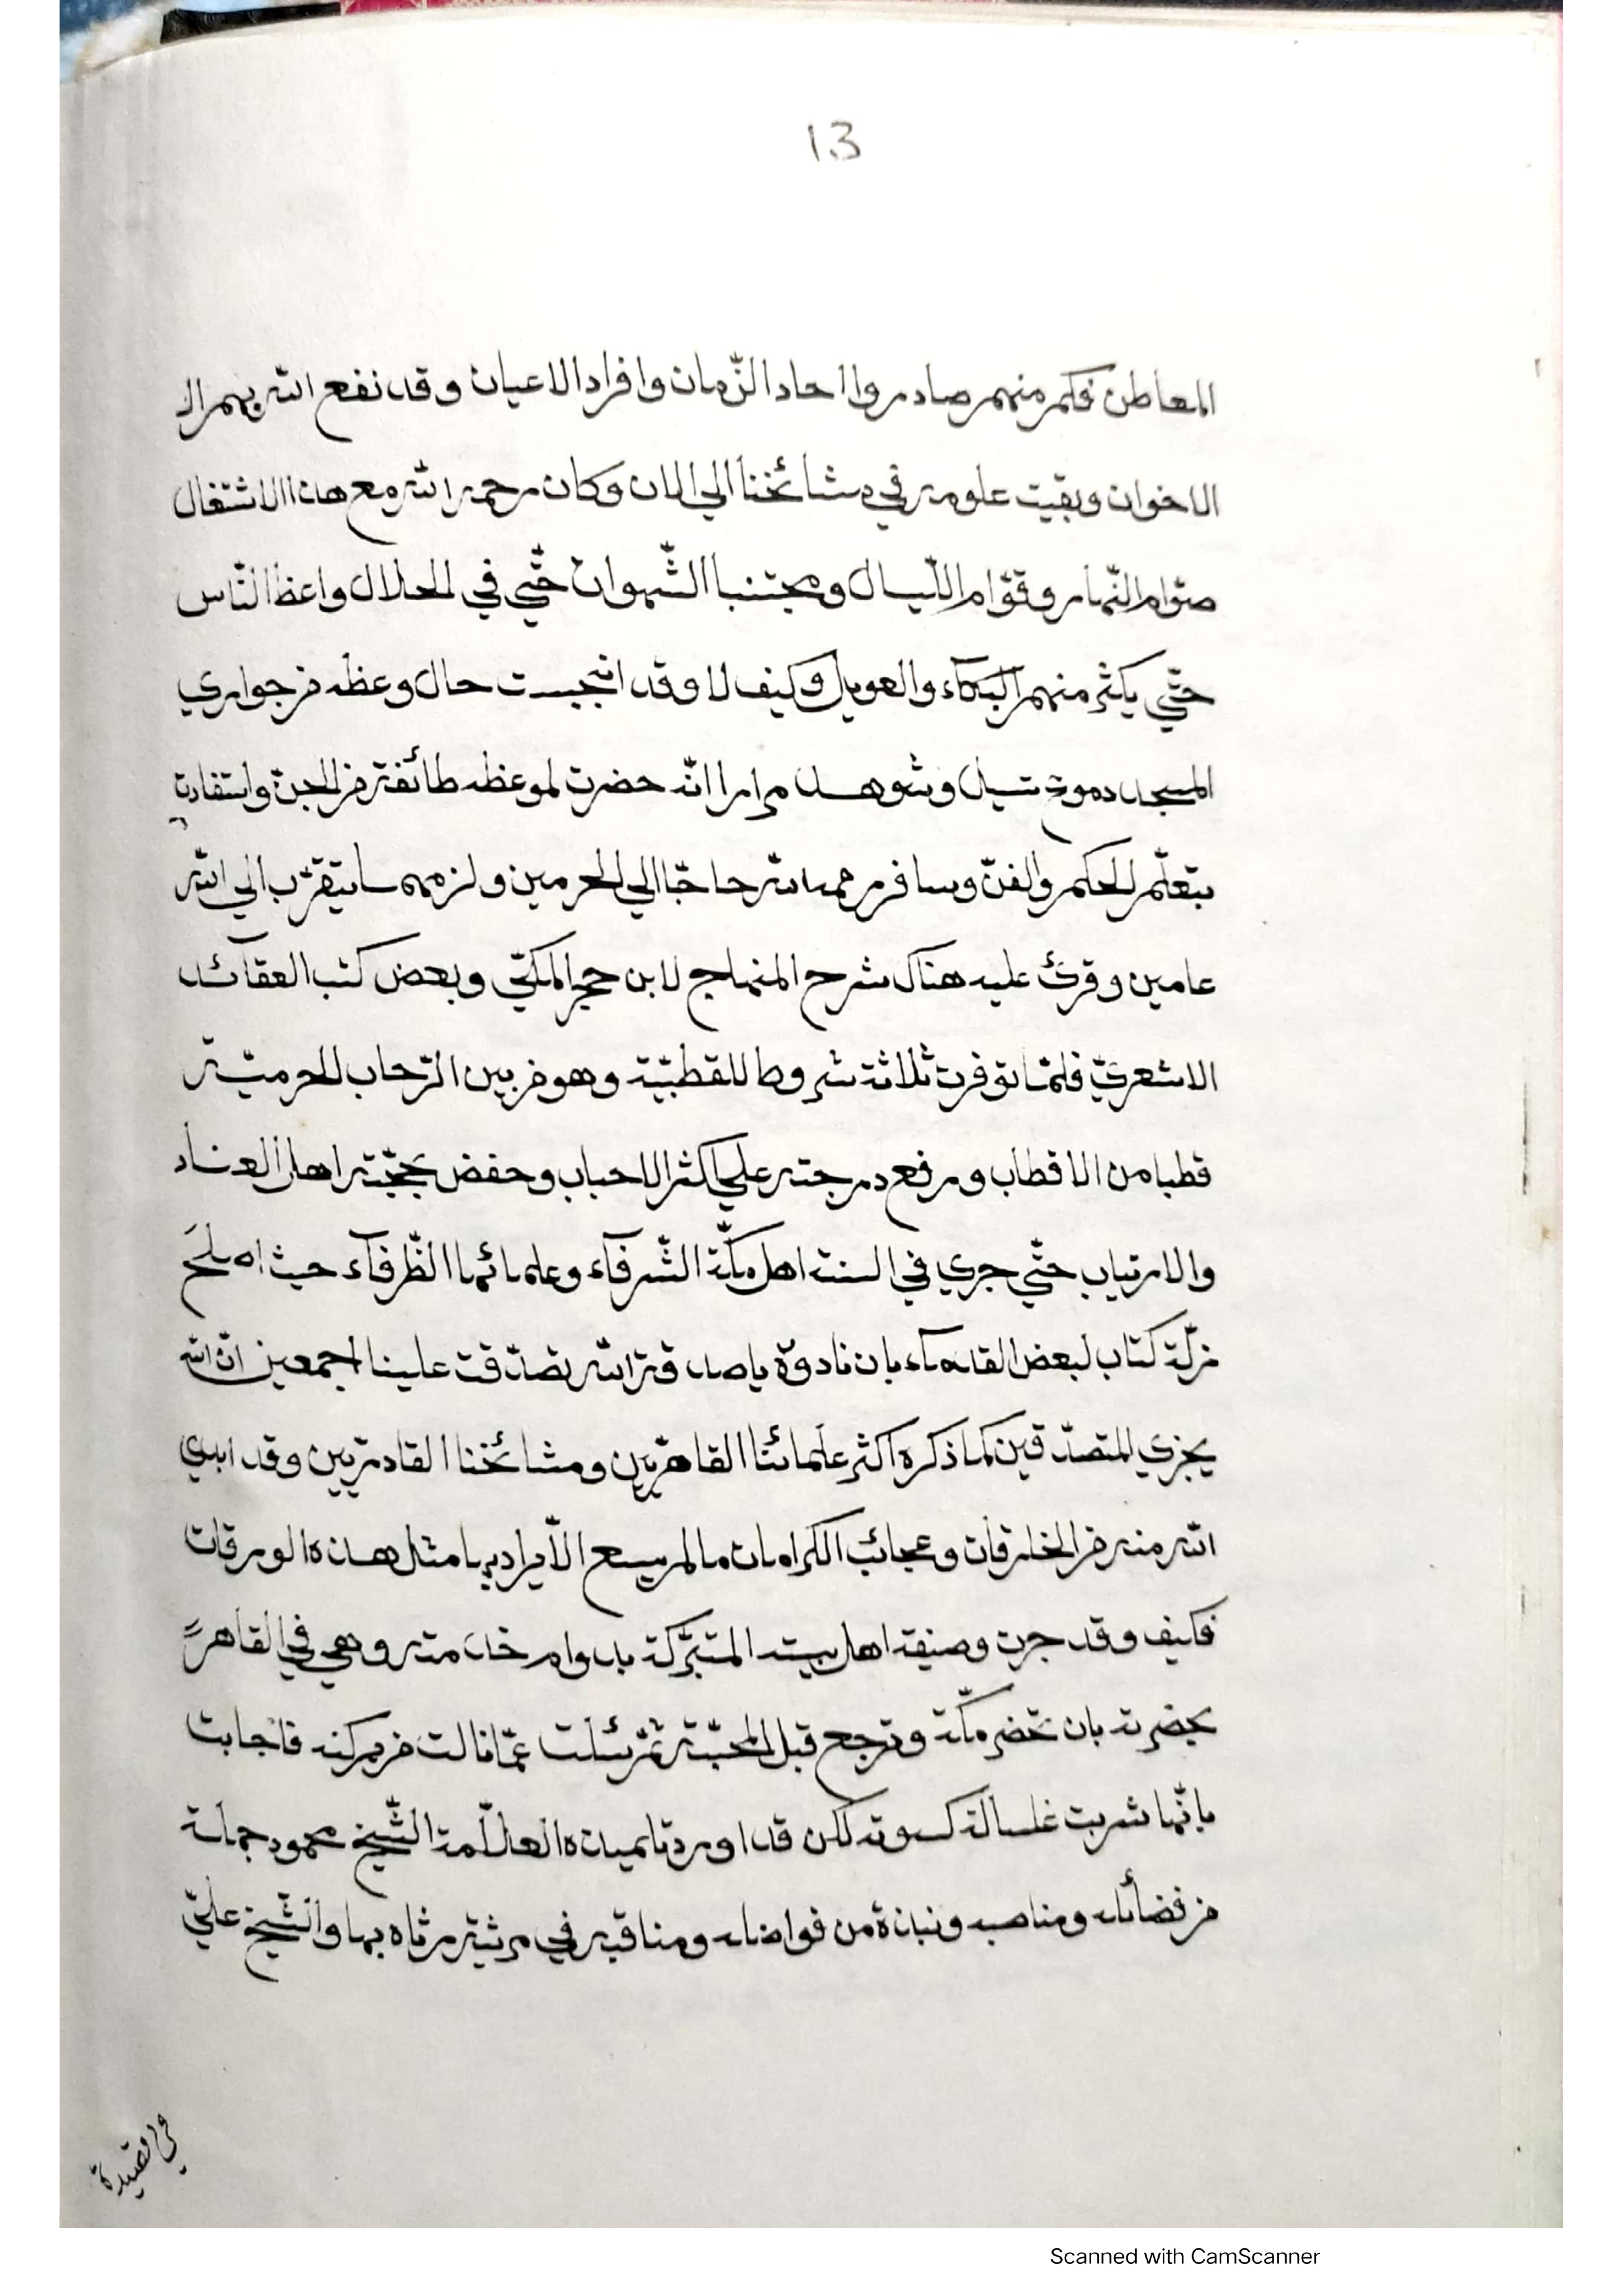 13
المعاطن فكم منهم صاروا احاد الزّمان وافراد الاعيان وقد نفع الله بهم الا
الاخوان وبقيت علومه في مشائخنا الي الان وكان رحمه الله مع هذا الاشتغال
صوّام النّهار وقوّام اللّيال ومجتنبا الشّهوات حتّي في الحلال واعظا النّاس
حتّي يكثر منهم البكاء والعويل وكيف لا وقد انبجست حال وعظه من جواري
المسجد دموع تسيل وشوهد مرارا انّه حضرت لموعظه طائفة من الجنّ واستفادت
بتعلّم الحكم والفنّ وسافر رحمه الله حاجّا الي الحرمين ولزمهما يتقرّب الي الله
عامين وقرئ عليه هناك شرح المنهاج لابن حجر المكّيّ وبعض كتب العقائد
الاشعريّ فلمّا توفرت ثلاثة شروط للقطبيّة وهو من بين الرّحاب الحرميّة
قطبا من الاقطاب ورفع درجته علي اكثر الاحباب وخفض بحجّته اهل العناد
والارتياب حتّي جري في السنة اهل مكّة الشّرفاء وعلمائها الظّرفاء حيث
من مكّة كتاب لبعض القدماء بان نادوه يا صدقة الله تصدّقت علينا اجمعين انّ الله
يجزي المتصدّقين كما ذكره اكثر علمائنا القاهريين ومشائخنا القادريين وقد ابدي
الله منه من الخارقات وعجائب الكرامات ما لم يسع الايراد بها مثل هذه الورقات
فكيف وقد جرت وصيفة اهل بيته المتبرّكة بدوام خدمته وهي في القاهر
بحضرته بان تحضر مكّة وترجع قبل ثمّ سئلت عمّا نالت فاجابت
بانّها شربت غسالة كسوته لكن قد اورد تلميذه العلّامة الشّيخ محمود جملة
من فضائله ومناصبه ونبذة من فواضله ومناقبه في مرثية رثاه بها والشّيخ عليّ
في القصيدة
Scanned with CamScanner